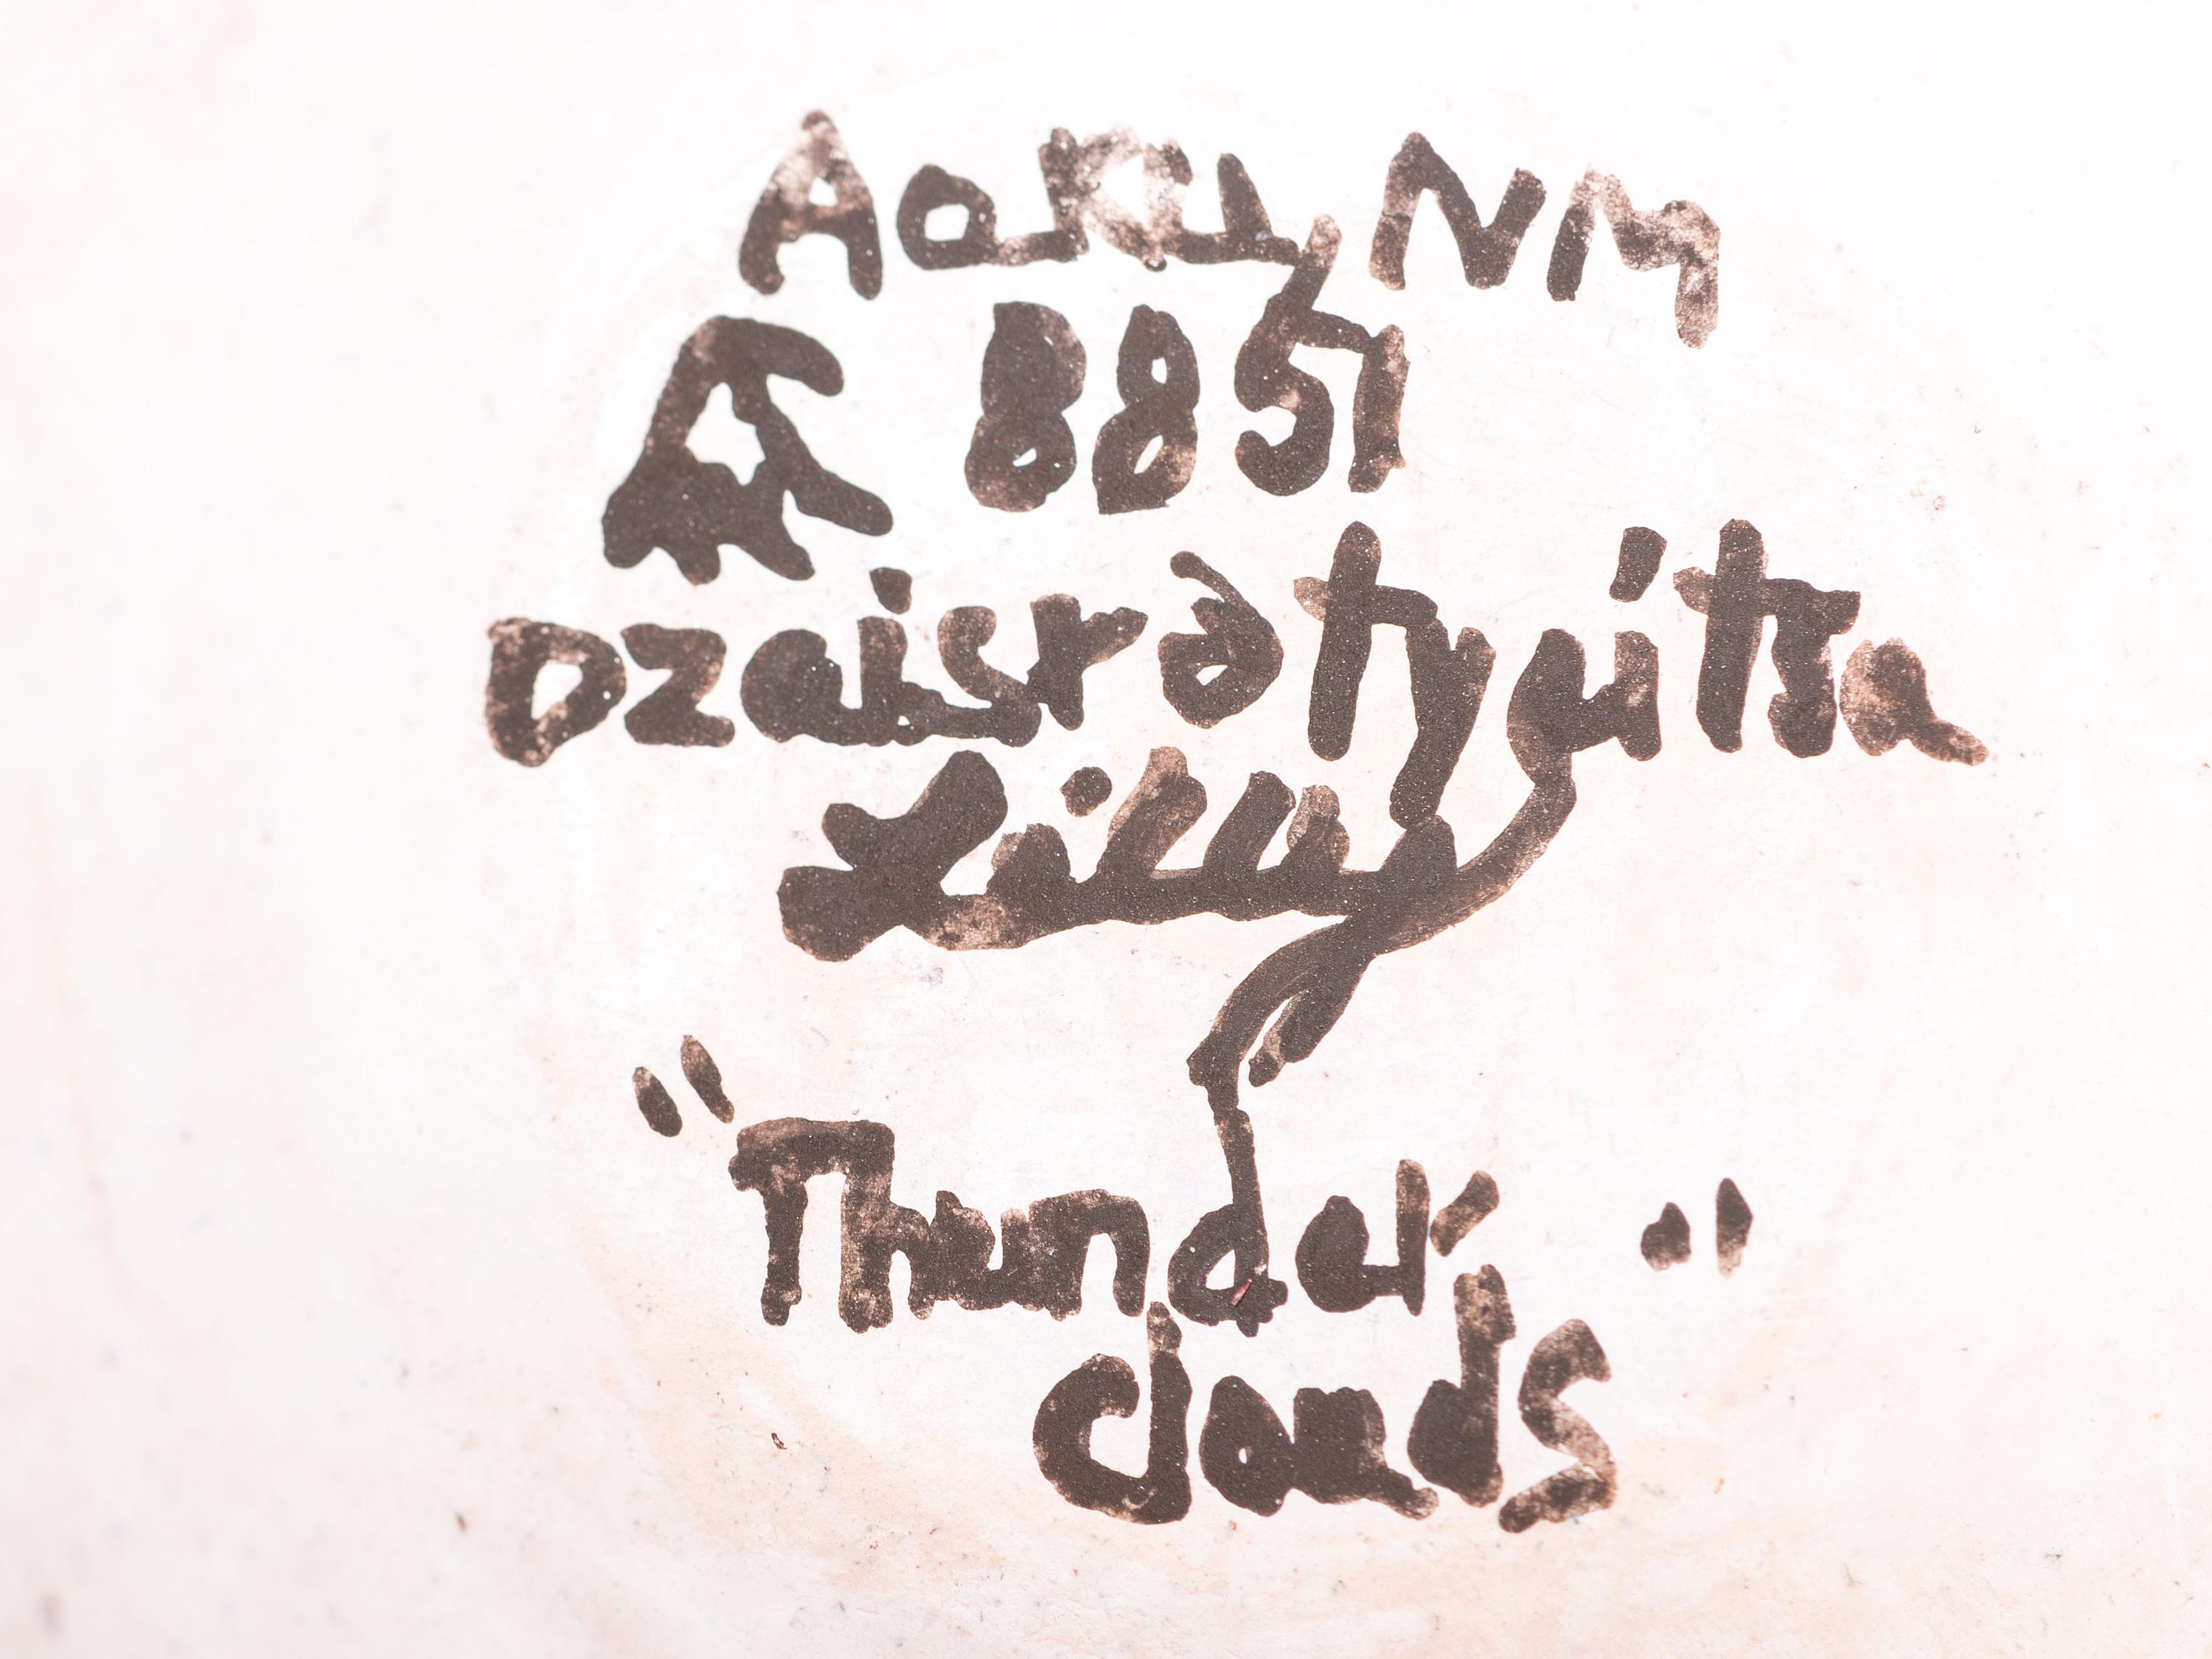 AaKu, NM
8851
Dzaisratyaitsa
Lilly
"Thunder "
clouds